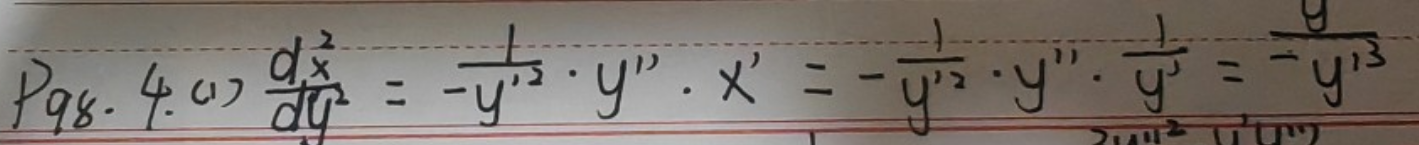 P98. 4.(1) \frac{d^2x}{dy^2} = \frac{1}{-y'^2} · y'' · x' = -\frac{1}{y'^2} · y'' · \frac{1}{y'} = -\frac{y}{y'^3}